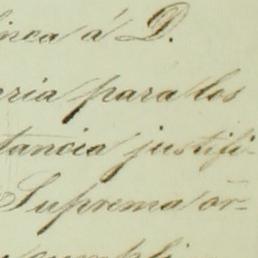 linea á D.
eria para los
tancia justifi-
Suprema ór-
cumpli